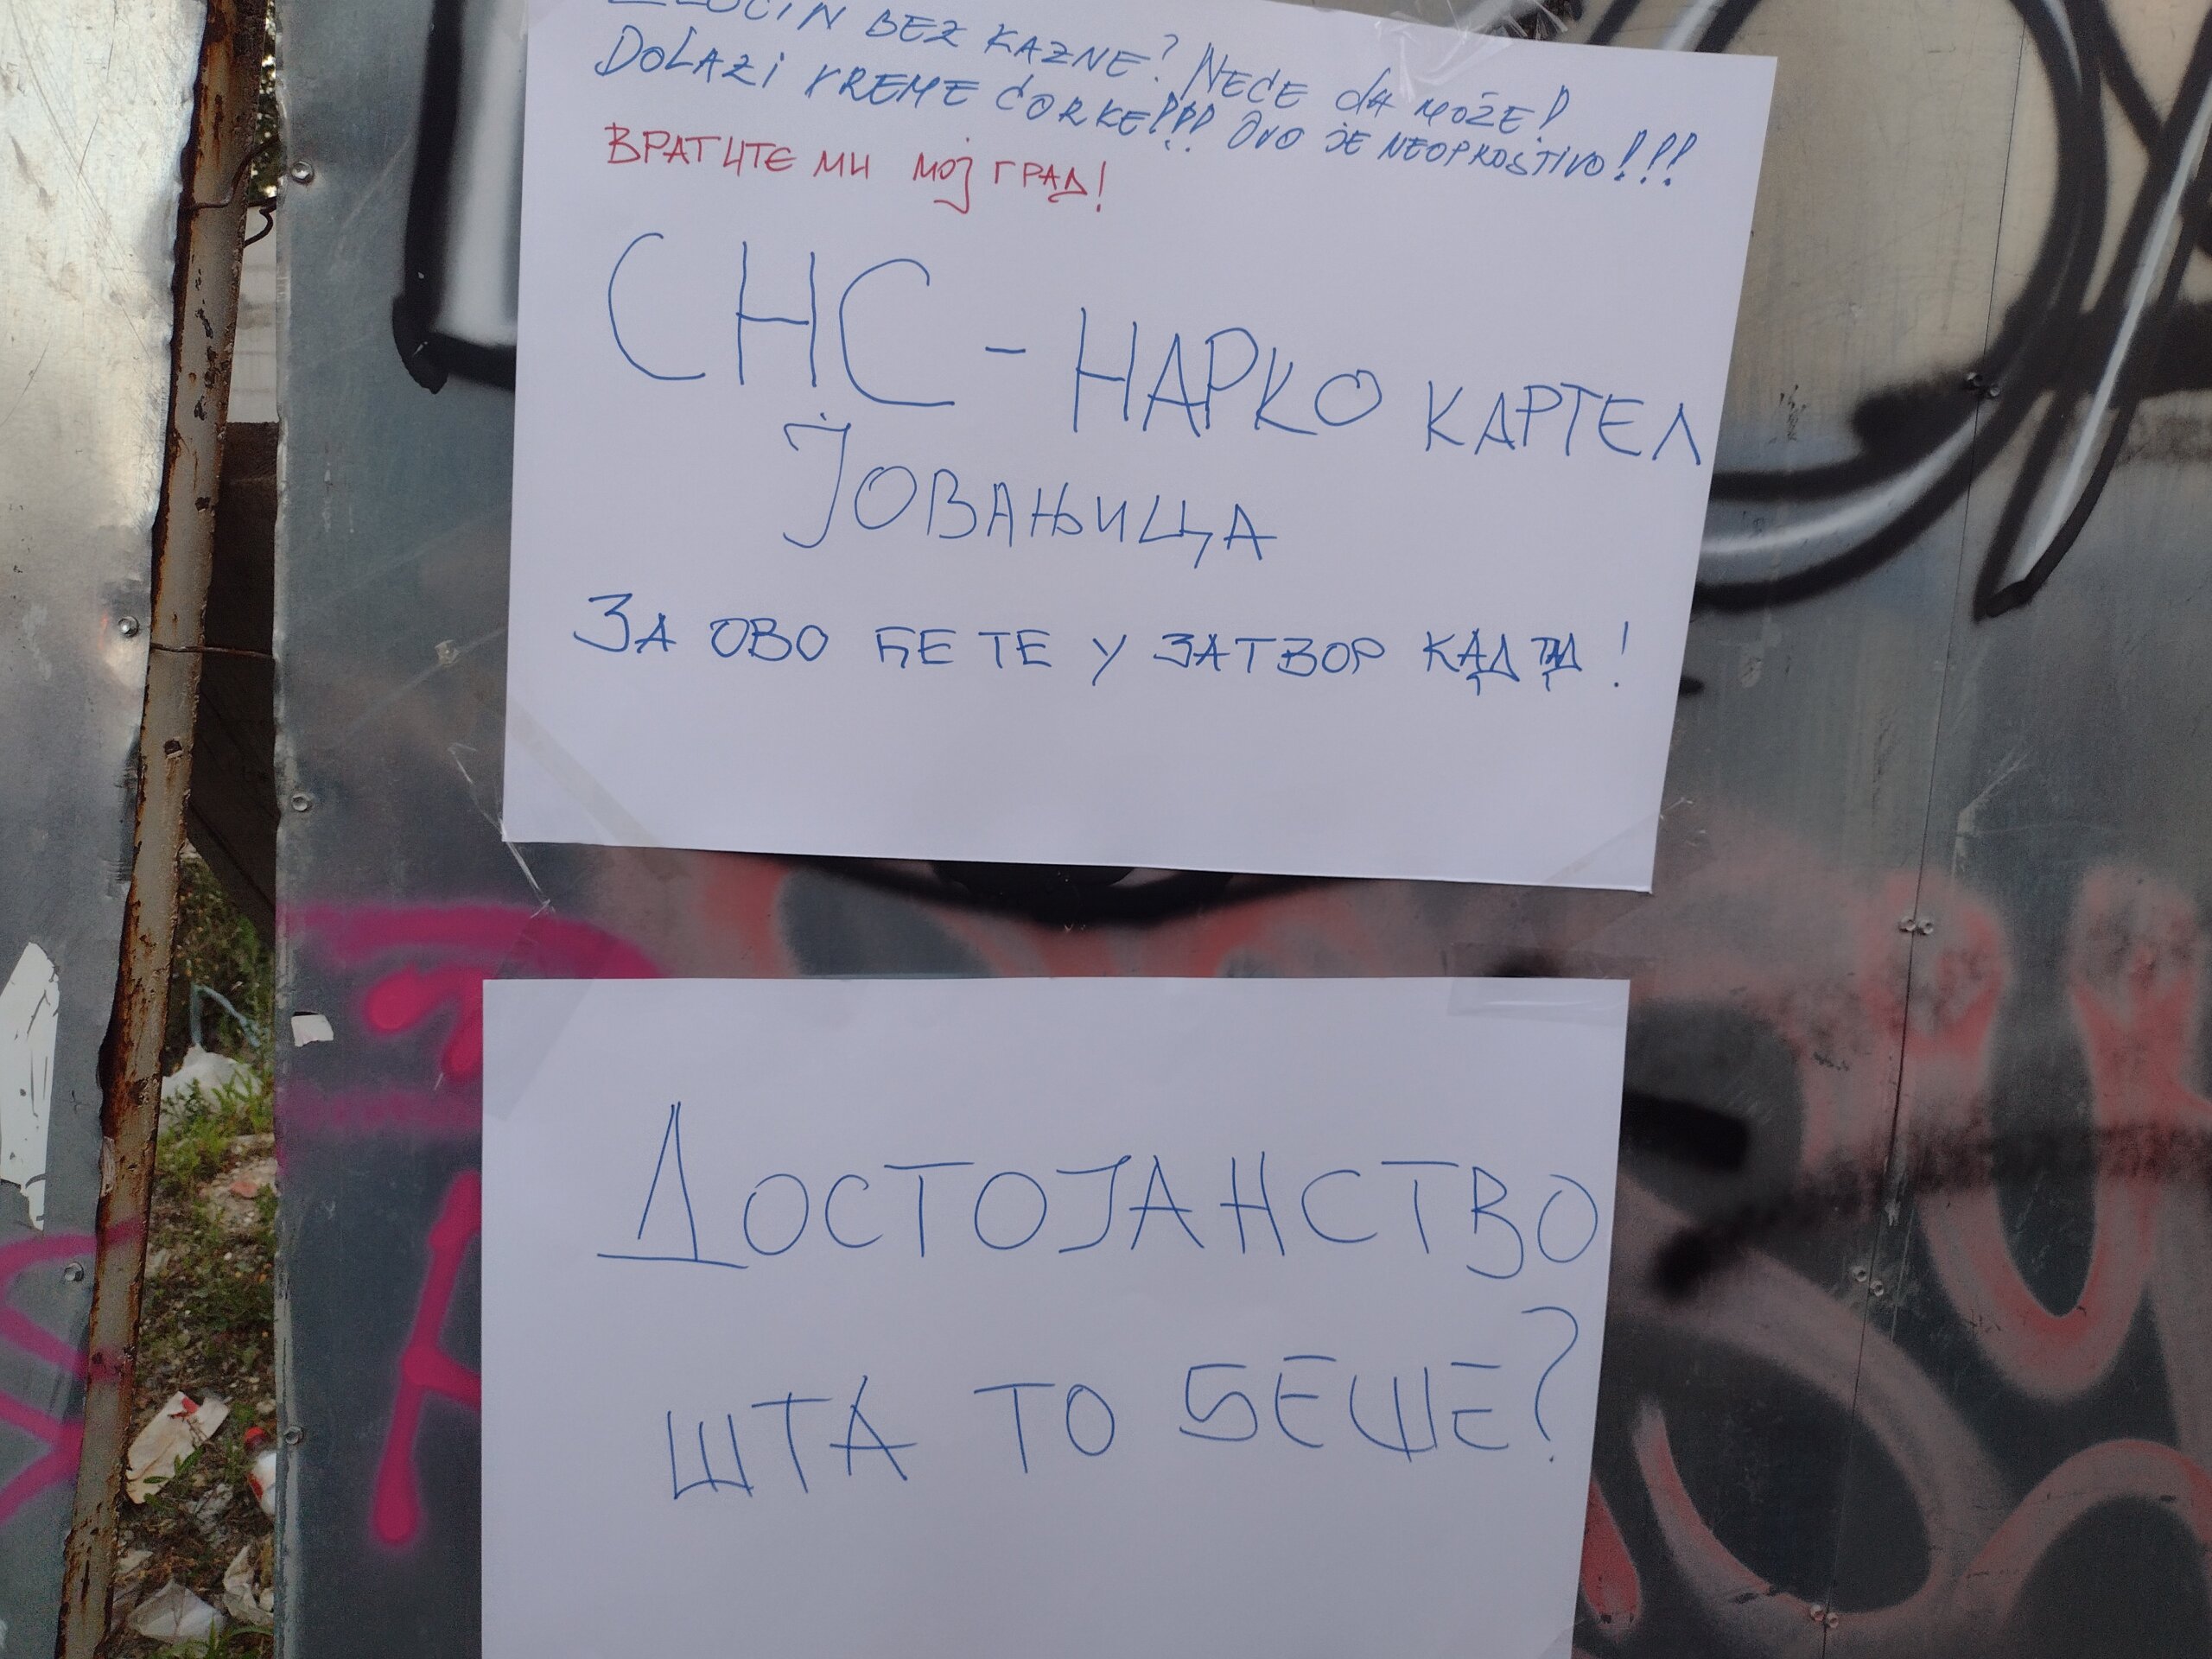 ZLOČIN BEZ KAZNE? NEĆE DA MOŽE!
DOLAZI VREME ĆORKE!!! OVO JE NEOPROSTIVO!!!
ВРАТИТЕ МИ МОЈ ГРАД!
СНС - НАРКО КАРТЕЛ
ЈОВАЊИЦА
ЗА ОВО ЋЕ ТЕ У ЗАТВОР КАД ТАД!
ДОСТОЈАНСТВО
ШТА ТО БЕШЕ?